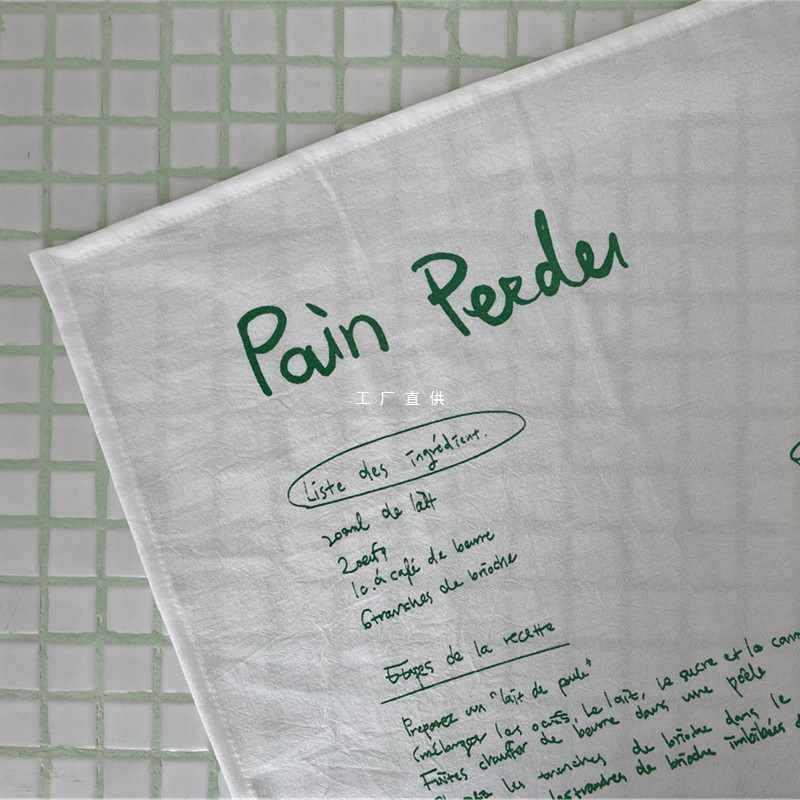 Pain Perdu
工厂直供
Liste des ingrédient.
200ml de lait
2 oeufs
1c. à café de beurre
6 tranches de brioche
Etapes de la recette
Preparez un "lait de poule"
(mélanger les oeufs, le lait, le sucre et la cann
Faites chauffer de beurre dans une poêle
les tranches de brioche dans le
les tranches de brioche imbibées